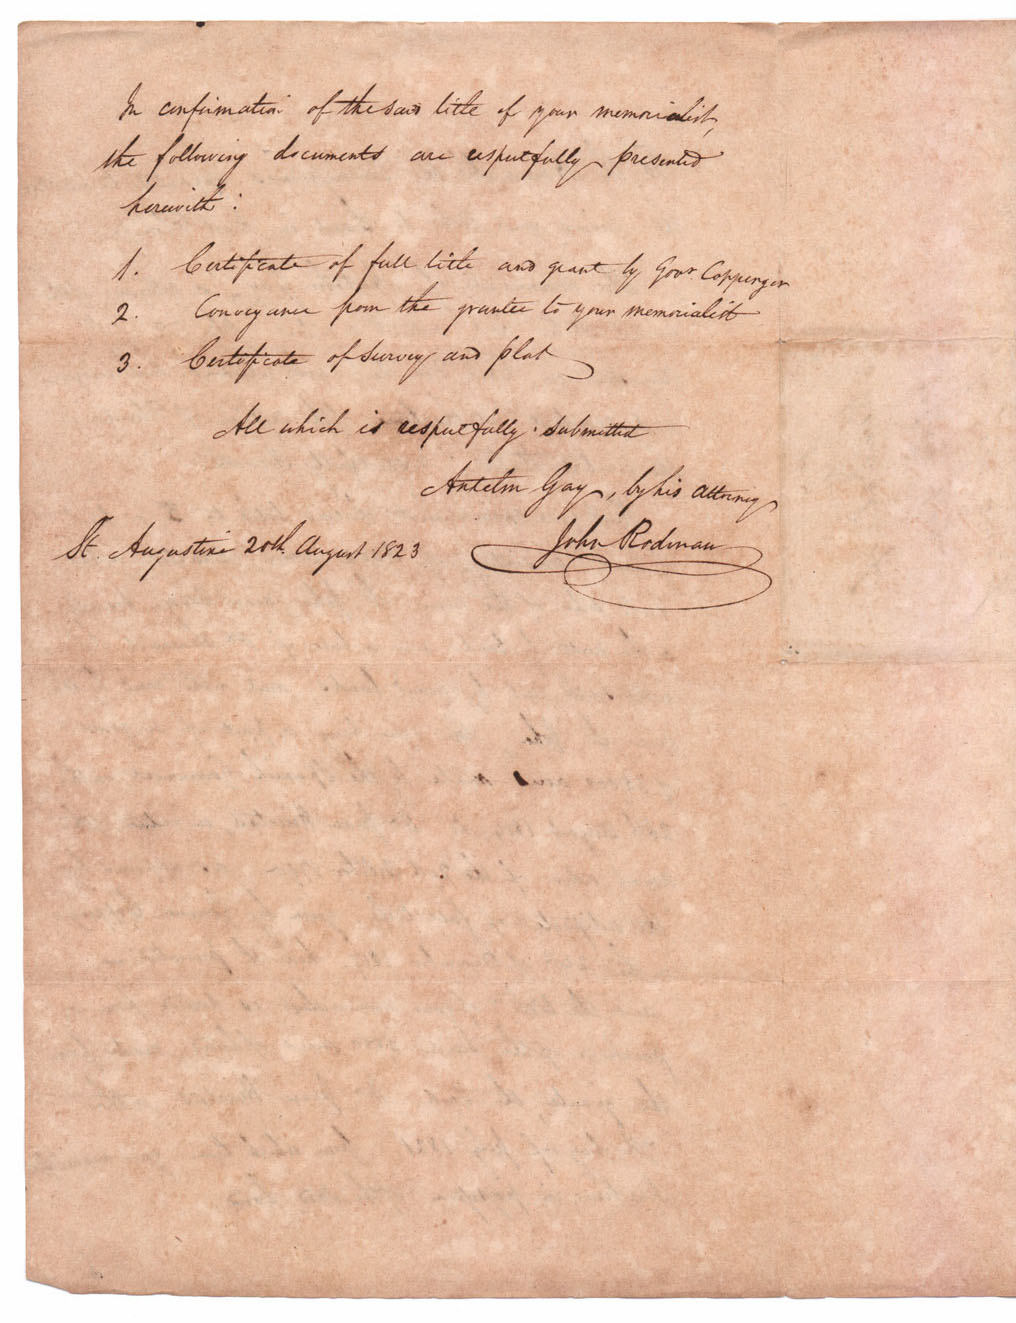 In confirmation of the said title of your memorialist,
the following documents are respectfully presented
herewith:
1. Certificate of full title and grant by Govr. Coppinger
2. Conveyance from the grantee to your memorialist
3. Certificate of Survey and plat
All which is respectfully submitted
Antelm Gay, by his attorney
John Rodman
St. Augustine 20th. August 1823